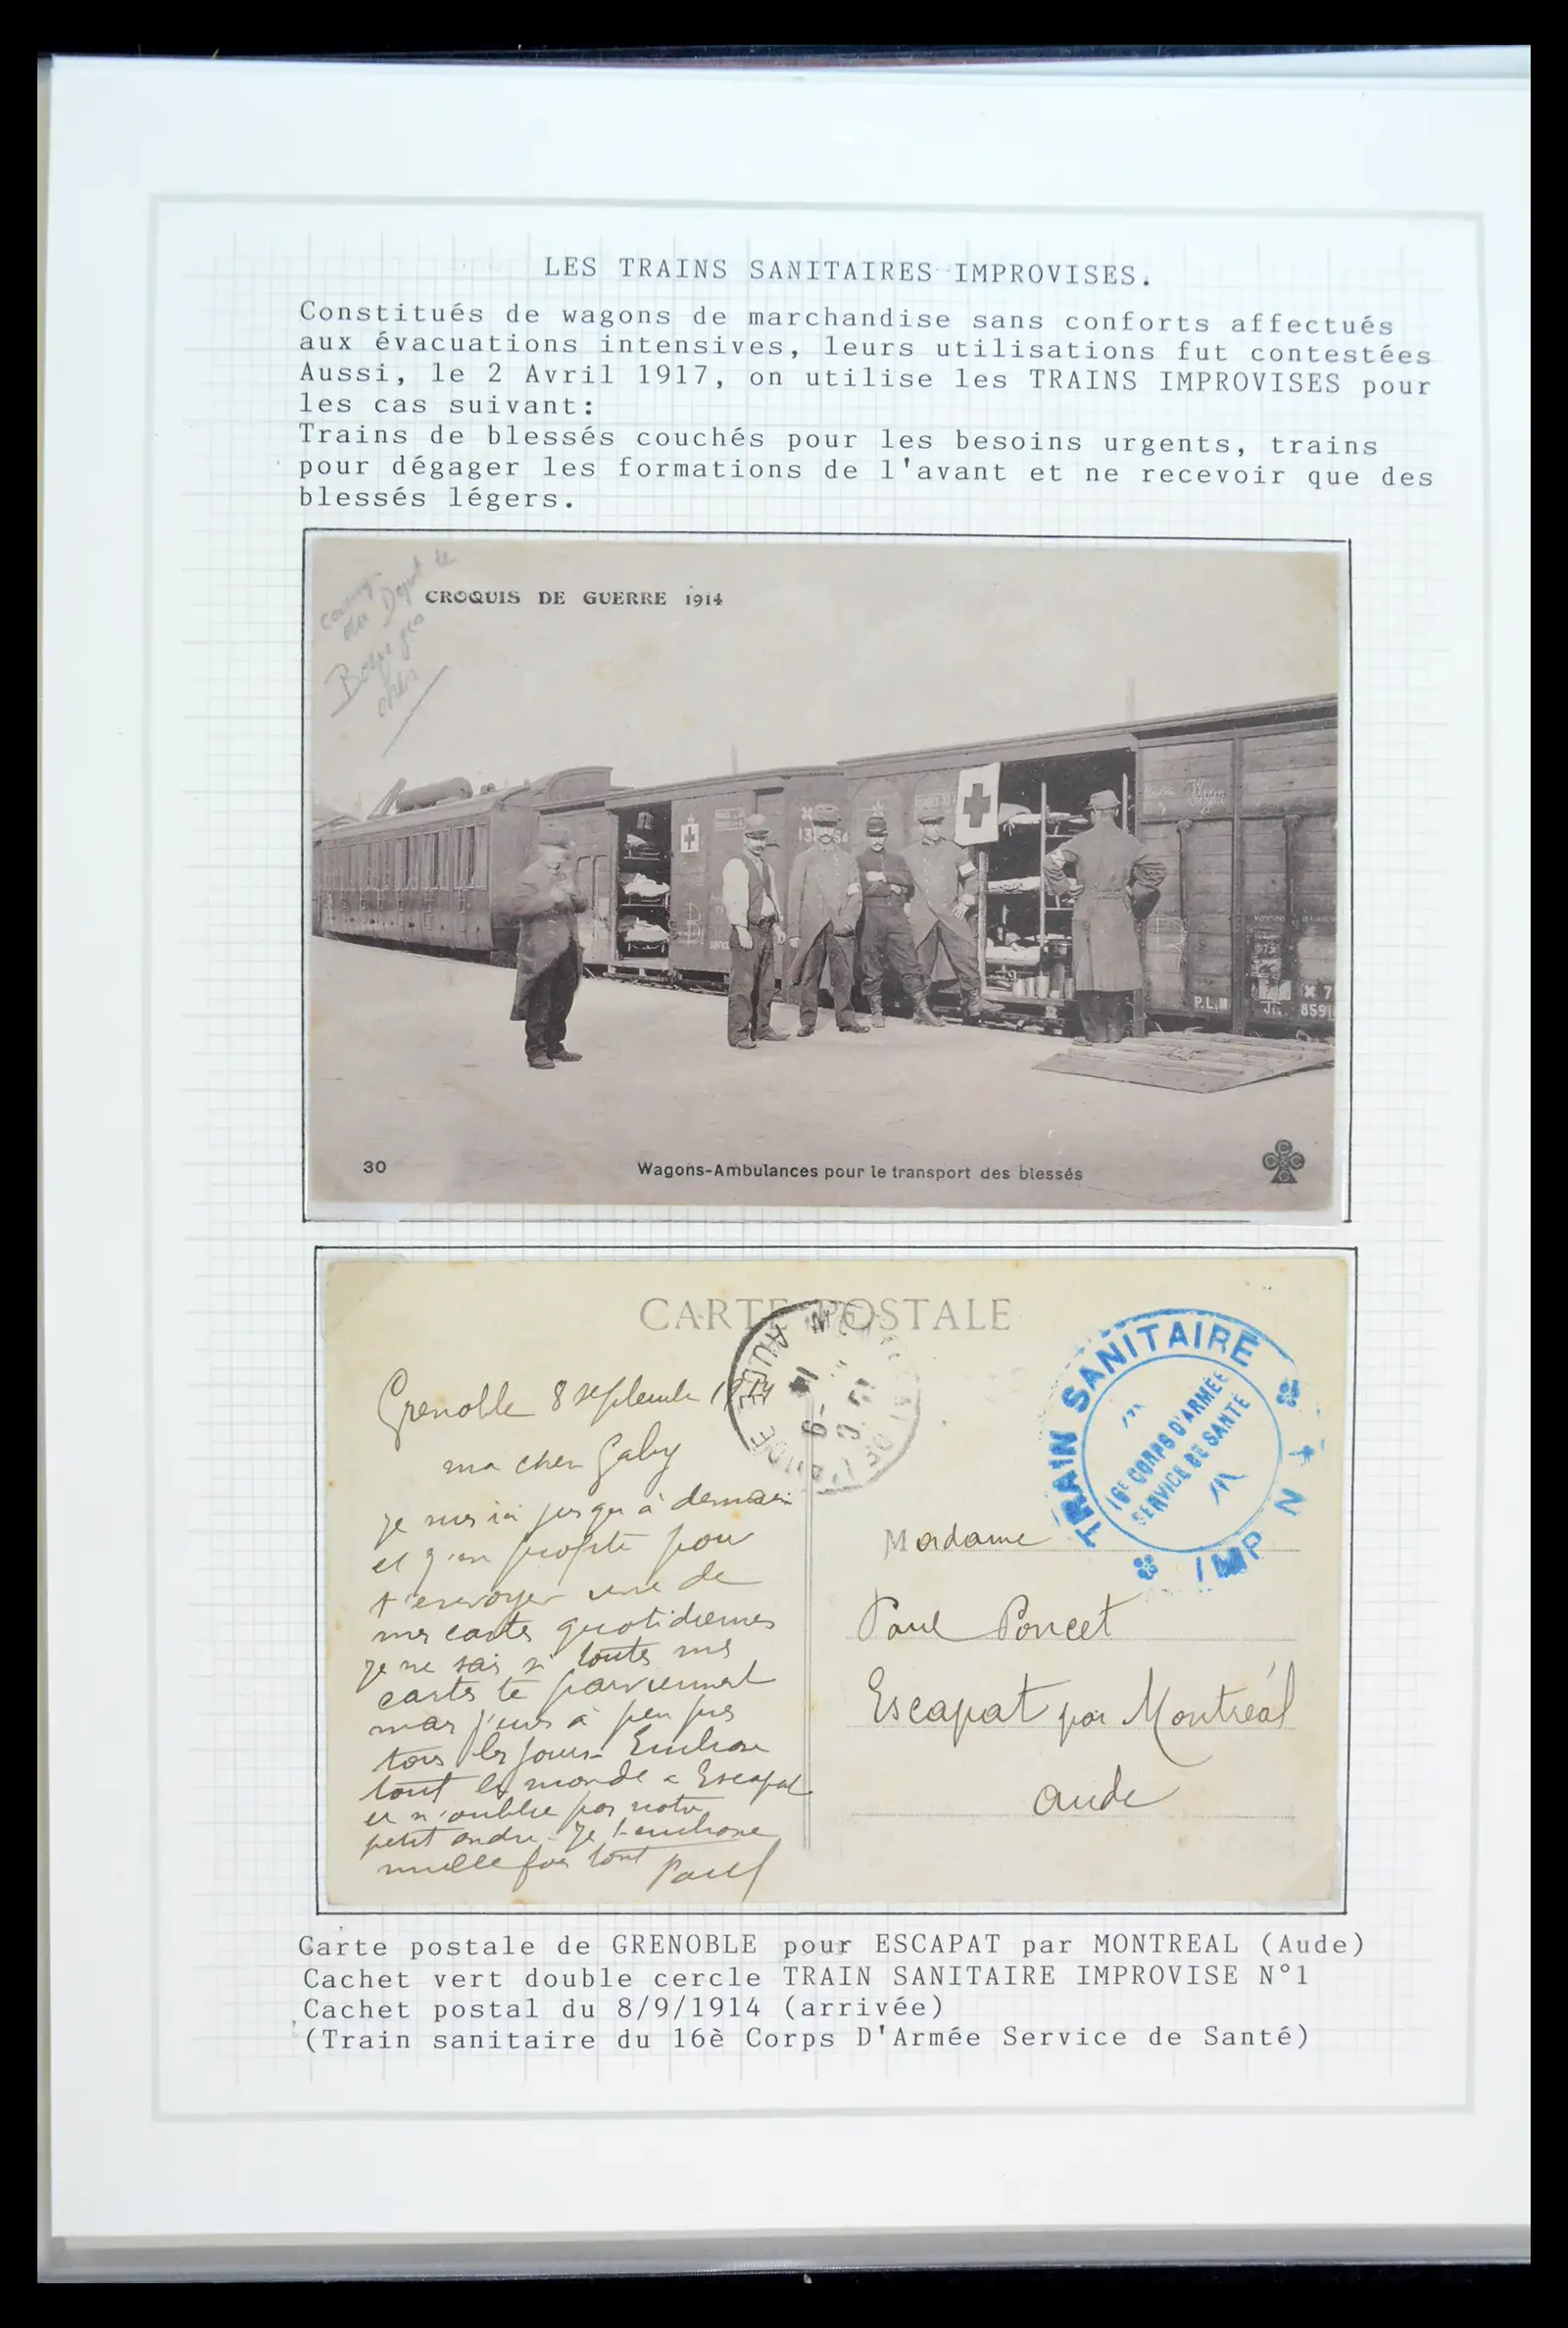 LES TRAINS SANITAIRES IMPROVISES.
Constitués de wagons de marchandise sans conforts affectués
aux évacuations intensives, leurs utilisations fut contestées
Aussi, le 2 Avril 1917, on utilise les TRAINS IMPROVISES pour
les cas suivant:
Trains de blessés couchés pour les besoins urgents, trains
pour dégager les formations de l'avant et ne recevoir que des
blessés légers.
CROQUIS DE GUERRE 1914
P.L.M
30
Wagons-Ambulances pour le transport des blessés
CARTE POSTALE
AUDE
TRAIN SANITAIRE
16E CORPS D'ARMÉE
SERVICE DE SANTÉ
IMP N
Grenoble 8 septembre 1914
ma cher Gaby
je suis ici jusqu'à demain
et j'en profite pour
t'envoyer une de
mes cartes quotidiennes
je ne sais si toutes mes
cartes te parviennent
mais j'ecris à peu pres
tous les jours. Embrasse
tout le monde a Escapat
et n'oublie pas notre
petit andre. Je t'embrasse
mille fois tout Paul
Madame
Paul Poncet
Escapat par Montréal
Aude
Carte postale de GRENOBLE pour ESCAPAT par MONTREAL (Aude)
Cachet vert double cercle TRAIN SANITAIRE IMPROVISE N°1
Cachet postal du 8/9/1914 (arrivée)
(Train sanitaire du 16è Corps D'Armée Service de Santé)